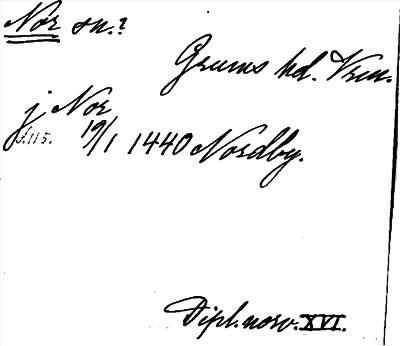 Nor sn.?
Grums hd. Vrm.
j Nor
s. 115. 19/1 1440 Nordby.
Dipl. norv. XVI.